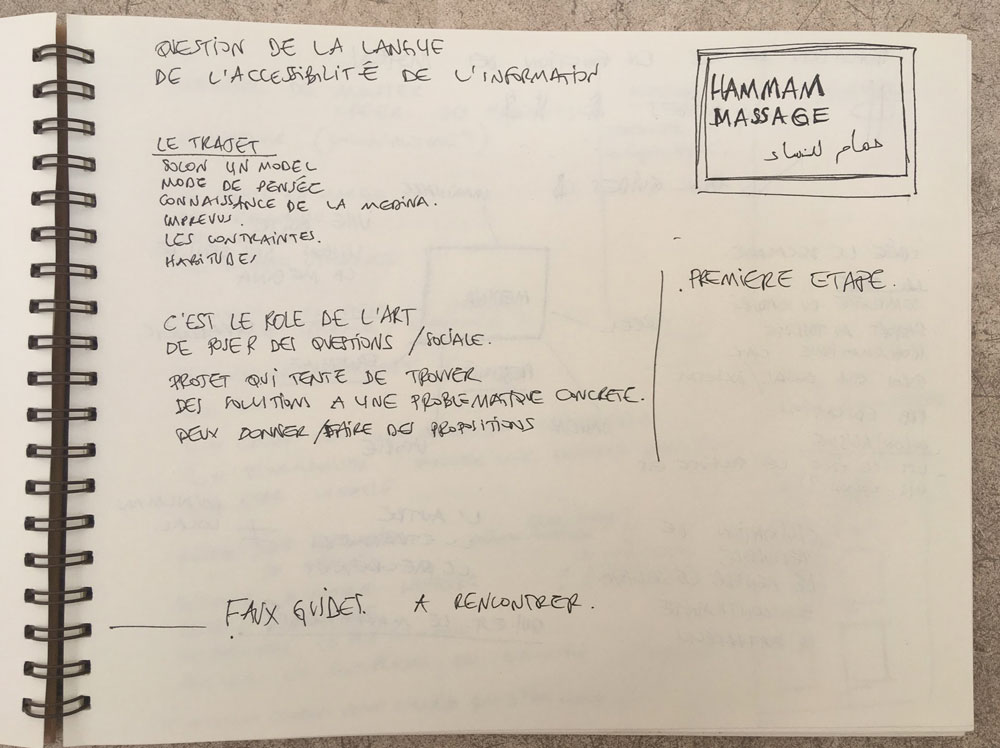 QUESTION DE LA LANGUE
DE L'ACCESSIBILITÉ DE L'INFORMATION
HAMMAM
MASSAGE
حمام للنساء
LE TRAJET
SOLON UN MODEL
MODE DE PENSÉE
CONNAISSANCE DE LA MEDINA.
IMPREVUS.
LES CONTRAINTES.
HABITUDES
. PREMIERE ETAPE.
C'EST LE ROLE DE L'ART
DE POSER DES QUESTIONS / SOCIALE.
PROJET QUI TENTE DE TROUVER
DES SOLUTIONS A UNE PROBLEMATIQUE CONCRETE.
PEUX DONNER / FAIRE DES PROPOSITIONS
FAUX GUIDES. A RENCONTRER.